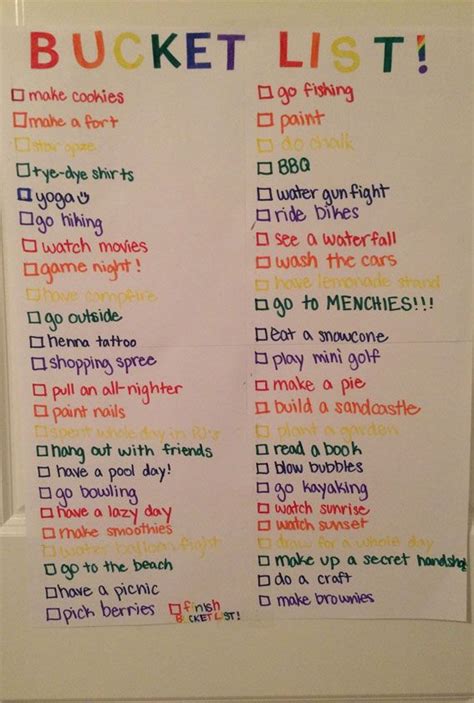 BUCKET LIST!
make cookies
make a fort
star gaze
tye-dye shirts
yoga
go hiking
watch movies
game night!
have campfire
go outside
henna tattoo
shopping spree
pull an all-nighter
paint nails
spent whole day in PJ's
hang out with friends
have a pool day!
go bowling
have a lazy day
make smoothies
water balloon fight
go to the beach
have a picnic
pick berries
finish
BUCKET LIST!
go fishing
paint
do chalk
BBQ
water gun fight
ride bikes
see a waterfall
wash the cars
have lemonade stand
go to MENCHIES!!!
eat a snowcone
play mini golf
make a pie
build a sandcastle
plant a garden
read a book
blow bubbles
go kayaking
watch sunrise
watch sunset
draw for a whole day
make up a secret handshq
do a craft
make brownies